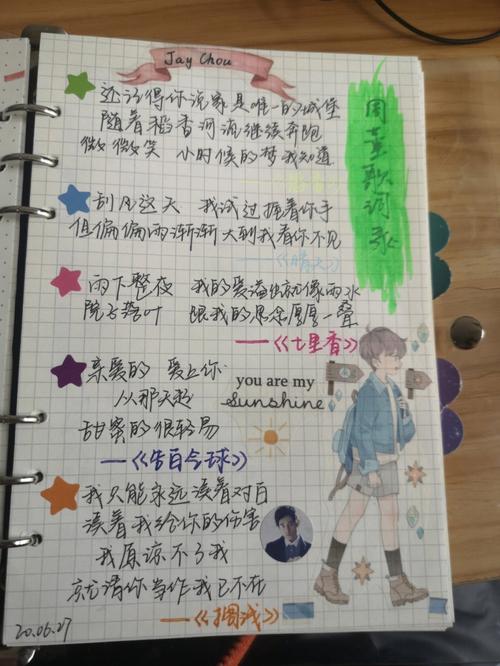 Jay Chou
周董歌词本
还记得你说家是唯一的城堡
随着稻香河流继续奔跑
微微笑 小时候的梦我知道
《稻香》
刮风这天 我试过握着你手
但偏偏雨渐渐 大到我看你不见
——《晴天》
雨下整夜 我的爱溢出就像雨水
院子落叶 跟我的思念厚厚一叠
——《七里香》
亲爱的 爱上你
从那天起
甜蜜的很轻易
——《告白气球》
you are my
Sunshine
我只能永远读着对白
读着我给你的伤害
我原谅不了我
就请你当作我已不在
——《搁浅》
20.06.27